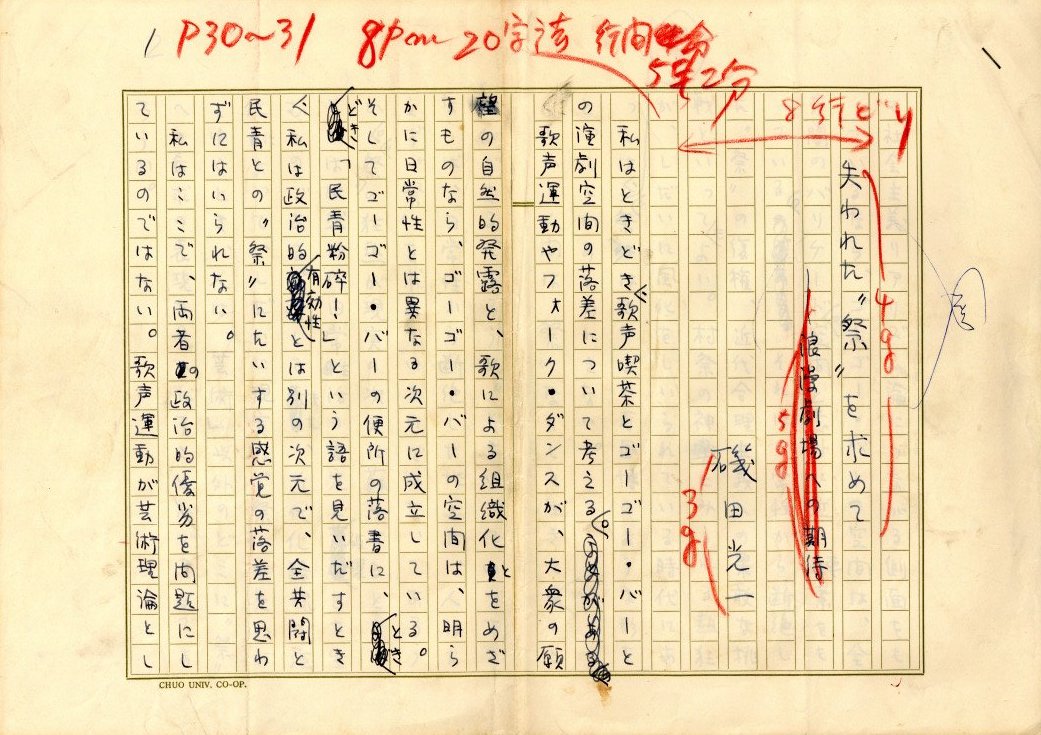 P30~31 8pm 20字詰 行間
5号2分
8行どり
失われた〝祭〟を求めて
4g
浪漫劇場への期待
5g
磯田光一
3g
私はときどき、歌声喫茶とゴーゴー・バーと
の演劇空間の落差について考える。
歌声運動やフォーク・ダンスが、大衆の願
望の自然的発露と、歌による組織化とをめざ
すものなら、ゴーゴー・バーの空間は、明ら
かに日常性とは異なる次元に成立している。
そしてゴーゴー・バーの便所の落書に、とき
どき「民青粉砕!」という語を見いだすとき
、私は政治的有効性とは別の次元で、全共闘と
民青との〝祭〟にたいする感覚の落差を思わ
ずにはいられない。
私はここで、両者の政治的優劣を問題にし
ているのではない。歌声運動が芸術理論とし
CHUO UNIV. CO-OP.